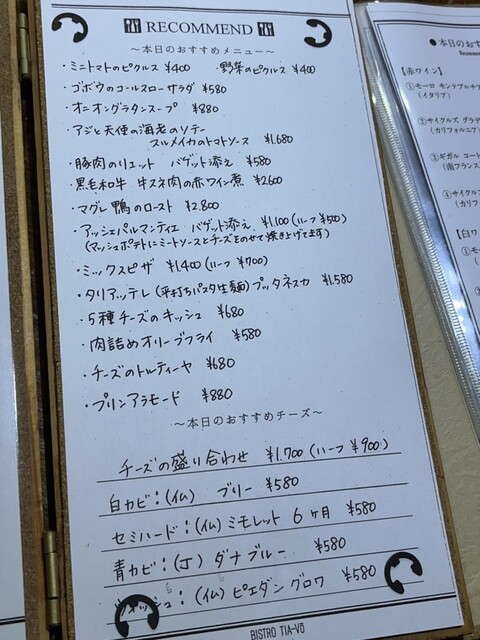 RECOMMEND
～本日のおすすめメニュー～
・ミニトマトのピクルス ¥400 ・野菜のピクルス ¥400
・ゴボウのコールスローサラダ ¥580
・オニオングラタンスープ ¥880
・アジと天使の海老のソテー
スルメイカのトマトソース ¥1.680
・豚肉のリエット バゲット添え ¥580
・黒毛和牛 牛スネ肉の赤ワイン煮 ¥2600
・マグレ鴨のロースト ¥2.800
・アッシェパルマンティエ バゲット添え ¥1,100 (ハーフ ¥550)
(マッシュポテトにミートソースとチーズをのせて焼き上げてます)
・ミックスピザ ¥1400 (ハーフ ¥700)
・タリアッテレ (平打ちパスタ生麺) プッタネスカ ¥1.580
・5種チーズのキッシュ ¥680
・肉詰めオリーブフライ ¥580
・チーズのトルティーヤ ¥680
・プリンアラモード ¥880
～本日のおすすめチーズ～
チーズの盛り合わせ ¥1.700 (ハーフ ¥900)
白カビ：(仏) ブリー ¥580
セミハード：(仏) ミモレット 6ヶ月 ¥580
青カビ：(丁) ダナブルー ¥580
ウォッシュ：(仏) ピエダングロワ ¥580
BISTRO TIA-VŌ
●本日のお
【赤ワイン】
①モーロ モンテプルチア
(イタリア)
②サイクルズ グラデ
(カリフォルニア)
③ギガル コート
(南フランス
④サイクルズ
(カリフ
【白ワ
①モ